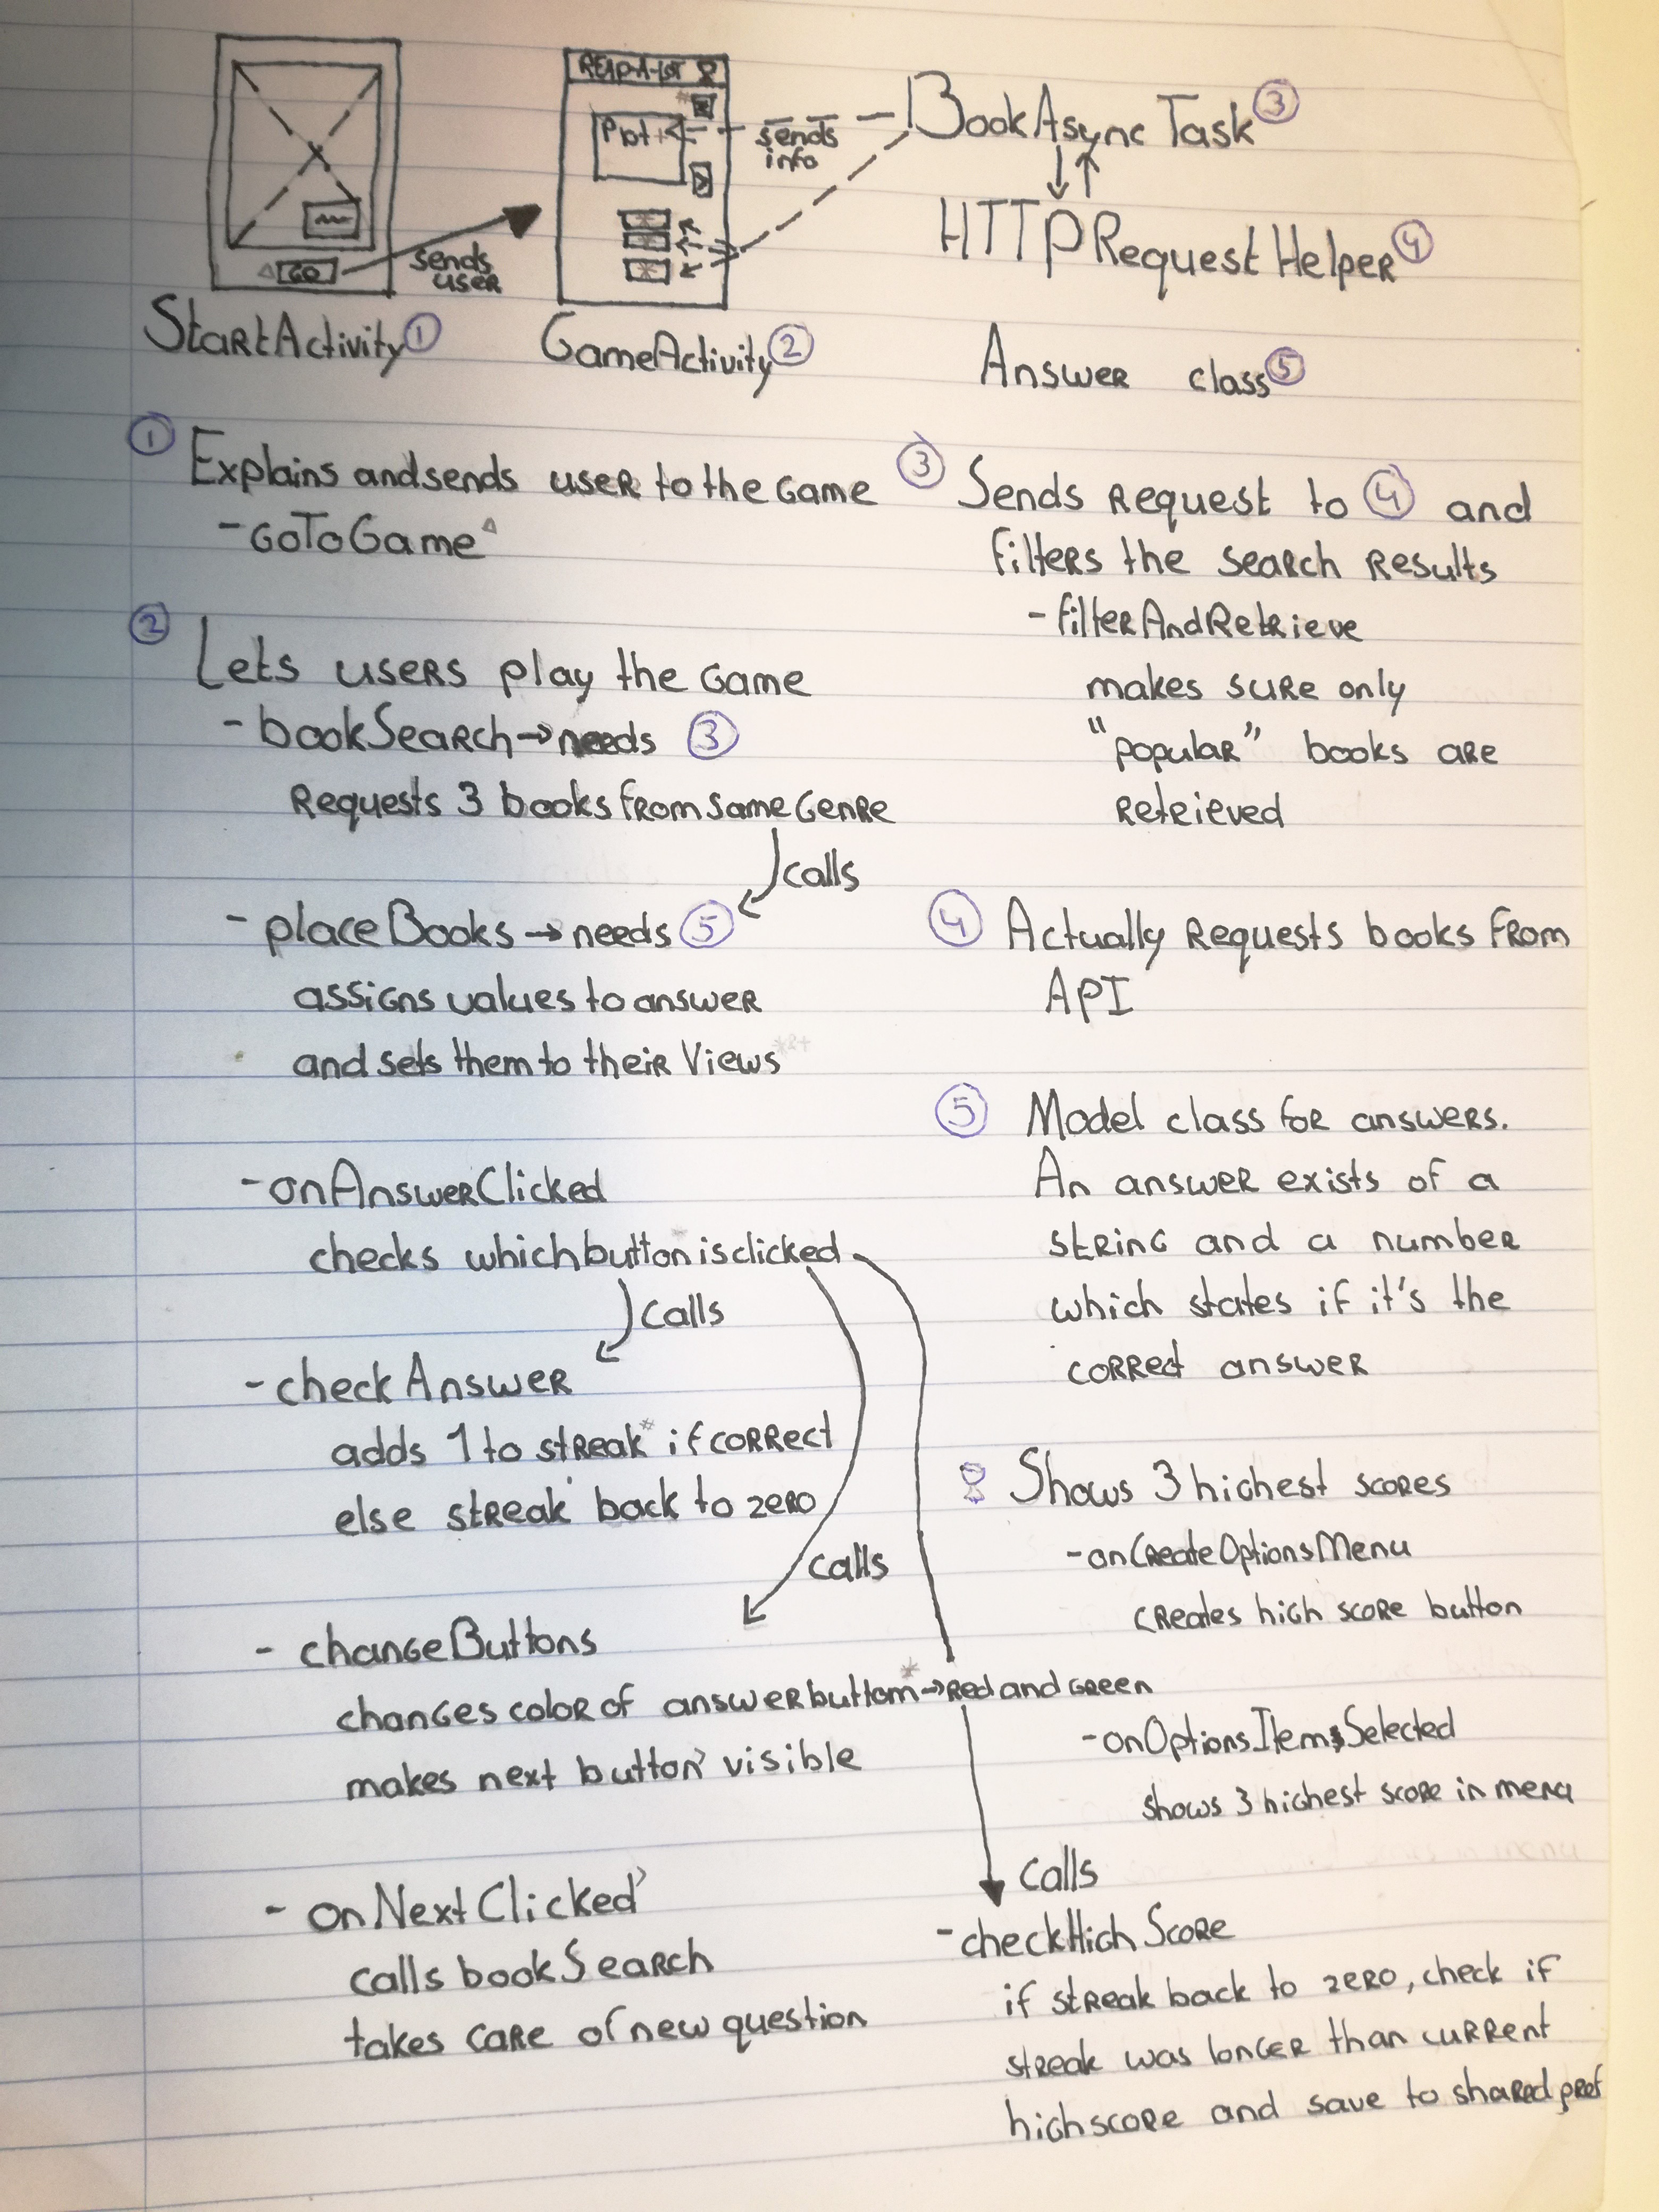 READ-A-LOT
Plot +
sends
info
BookAsyncTask ③
HTTPRequestHelper ④
GO
sends
user
StartActivity ①
GameActivity ②
Answer class ⑤
① Explains and sends user to the game
- GoToGame △
② Lets users play the game
- bookSearch → needs ③
Requests 3 books from same Genre
calls
- placeBooks → needs ⑤
assigns values to answer
and sets them to their Views *&+
- onAnswerClicked
checks which button* is clicked
calls
- checkAnswer
adds 1 to streak* if correct
else streak back to zero
calls
- changeButtons
changes color of answerbuttom* → Red and Green
makes next button> visible
- onNextClicked>
calls bookSearch
takes care of new question
③ Sends request to ④ and
filters the search results
- filterAndRetrieve
makes sure only
"popular" books are
retrieved
④ Actually requests books from
API
⑤ Model class for answers.
An answer exists of a
string and a number
which states if it's the
correct answer
Shows 3 highest scores
- onCreateOptionsMenu
creates high score button
- onOptionsItemSelected
shows 3 highest score in menu
calls
- checkHighScore
if streak back to zero, check if
streak was longer than current
highscore and save to shared pref